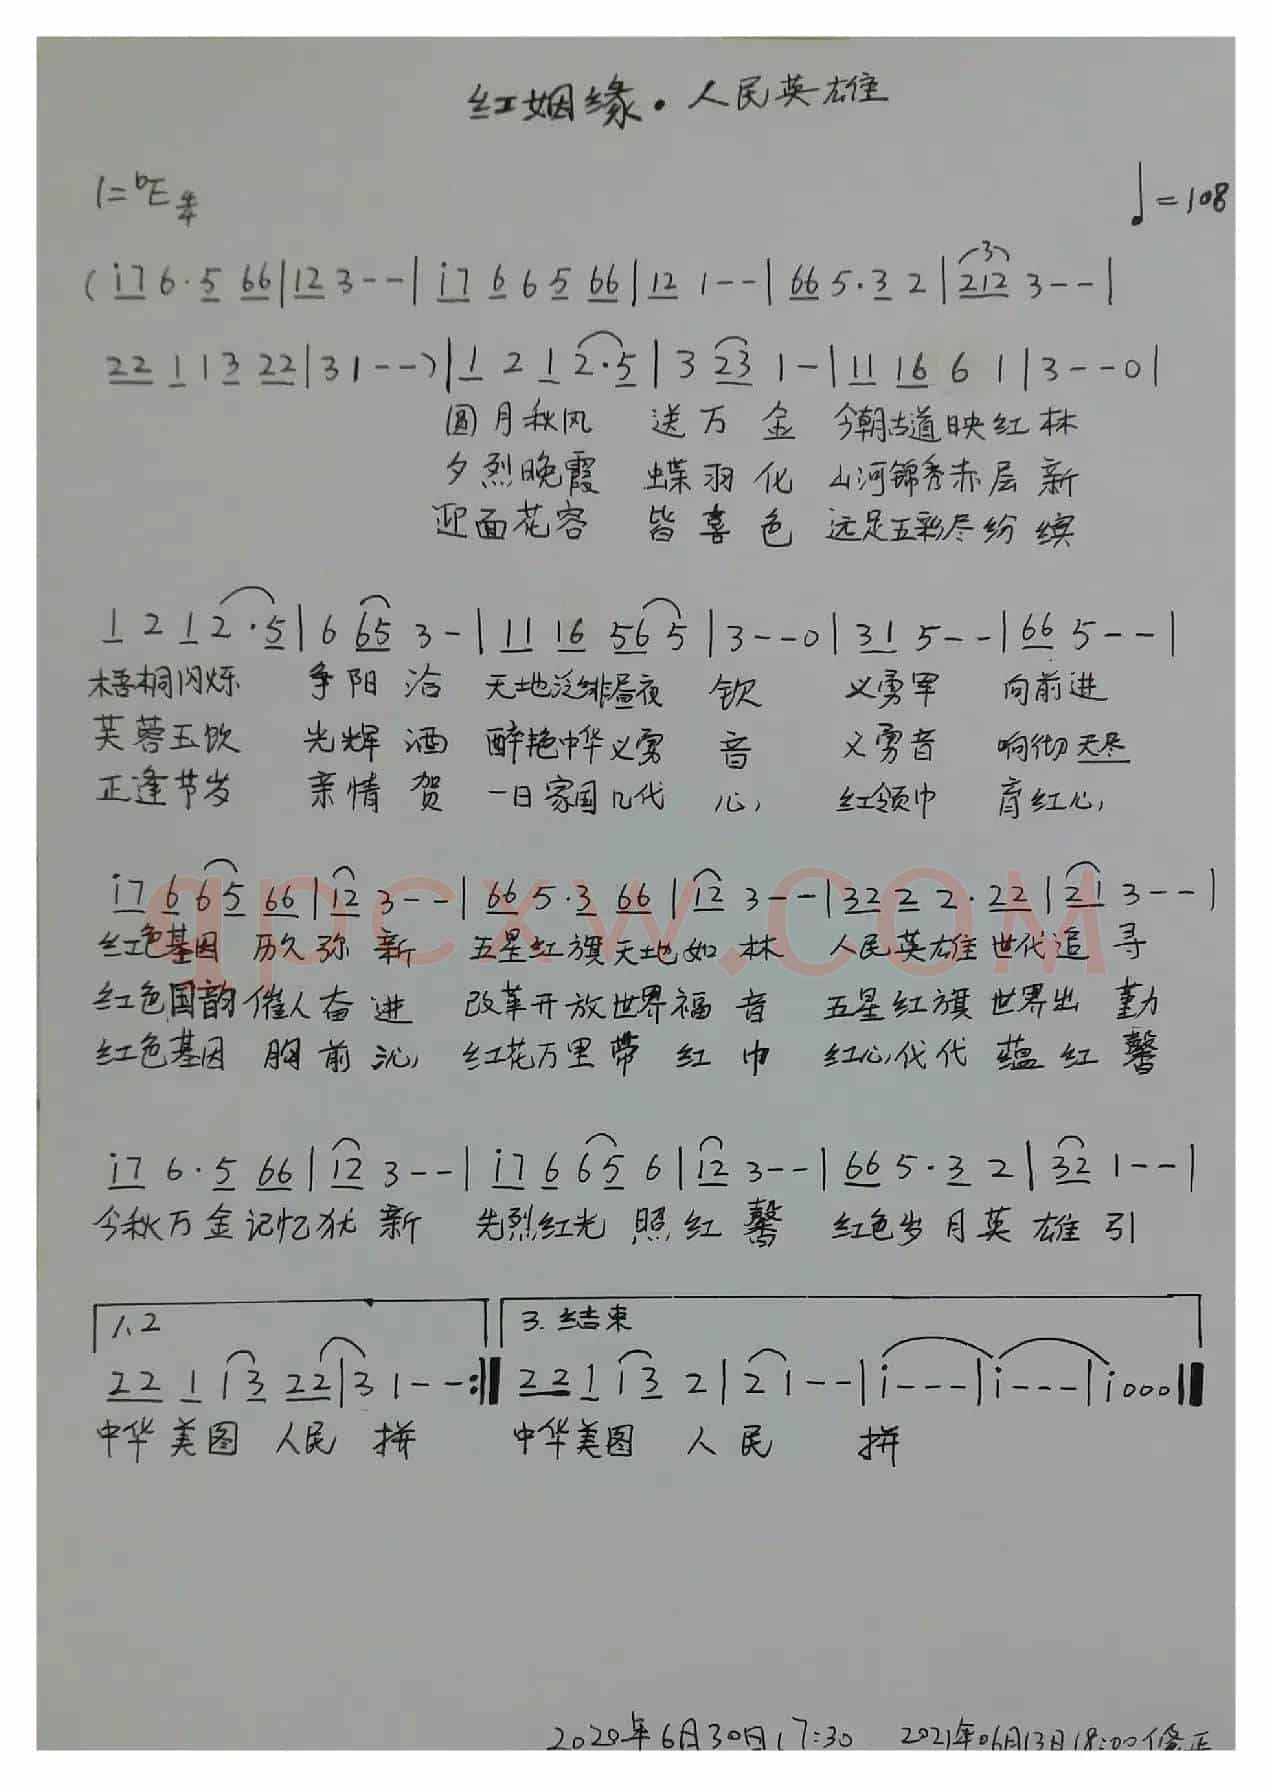 红姻缘·人民英雄
1=bE 4/4
♩=108
(i7 6·5 66|12 3--|i7 6 6 5 66|12 1--|66 5·3 2|212 3--|
3
22 1 1 3 22|31--)|1 2 1 2·5|3 23 1-|11 16 6 1|3--0|
圆月秋风 送万金 今朝古道映红林
夕烈晚霞 蝶羽化 山河锦秀赤层新
迎面花容 皆喜色 远足五彩尽纷缤
1 2 1 2·5|6 65 3-|11 16 56 5|3--0|31 5--|66 5--|
梧桐闪烁 争阳洽 天地泛绯昼夜 钦 义勇军 向前进
芙蓉玉饮 光辉洒 醉艳中华义勇 音 义勇音 响彻天尽
正逢节岁 亲情贺 一日家国几代 心, 红领巾 育红心,
i7 6 6 5 66|12 3--|66 5·3 66|12 3--|32 2 2·22|21 3--|
红色基因 历久弥新 五星红旗天地如林 人民英雄世代追寻
红色国韵催人奋进 改革开放世界福音 五星红旗世界出勤
红色基因 胸前沁, 红花万里带红巾 红心代代蕴红馨
i7 6·5 66|12 3--|i7 6 6 5 6|12 3--|66 5·3 2|32 1--|
今秋万金记忆犹新 先烈红光照红馨 红色岁月英雄引
1、2
3. 结束
22 1 1 3 22|3 1--:‖ 22 1 1 3 2|2 1--|i---|i---|i000‖
中华美图 人民 拼 中华美图 人民 拼
qpcxw.com
2020年6月30日17:30 2021年06月13日18:00修正